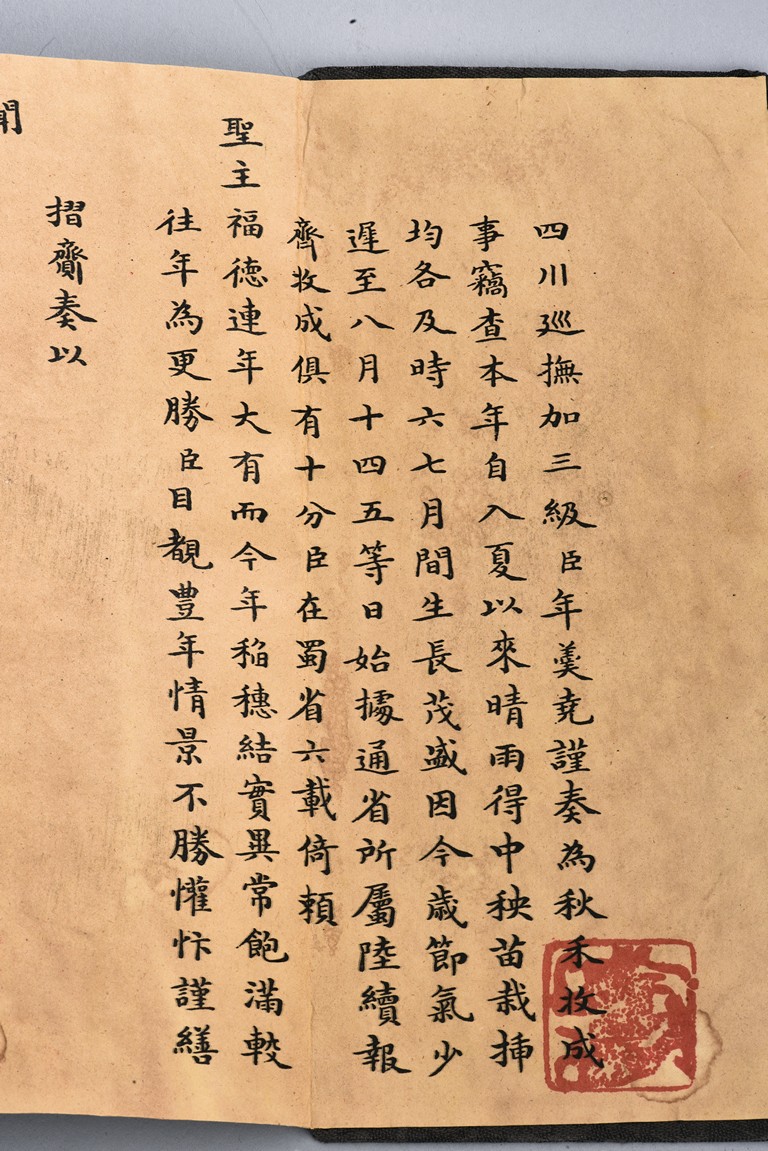 四川巡撫加三級臣年羹堯謹奏為秋禾收成
事竊查本年自入夏以來晴雨得中秧苗栽挿
均各及時六七月間生長茂盛因今歲節氣少
遲至八月十四五等日始據通省所屬陸續報
齊收成俱有十分臣在蜀省六載倚賴
聖主福德連年大有而今年稻穗結實異常飽滿較
往年為更勝臣目覩豐年情景不勝懽忭謹繕
摺齎奏以
聞